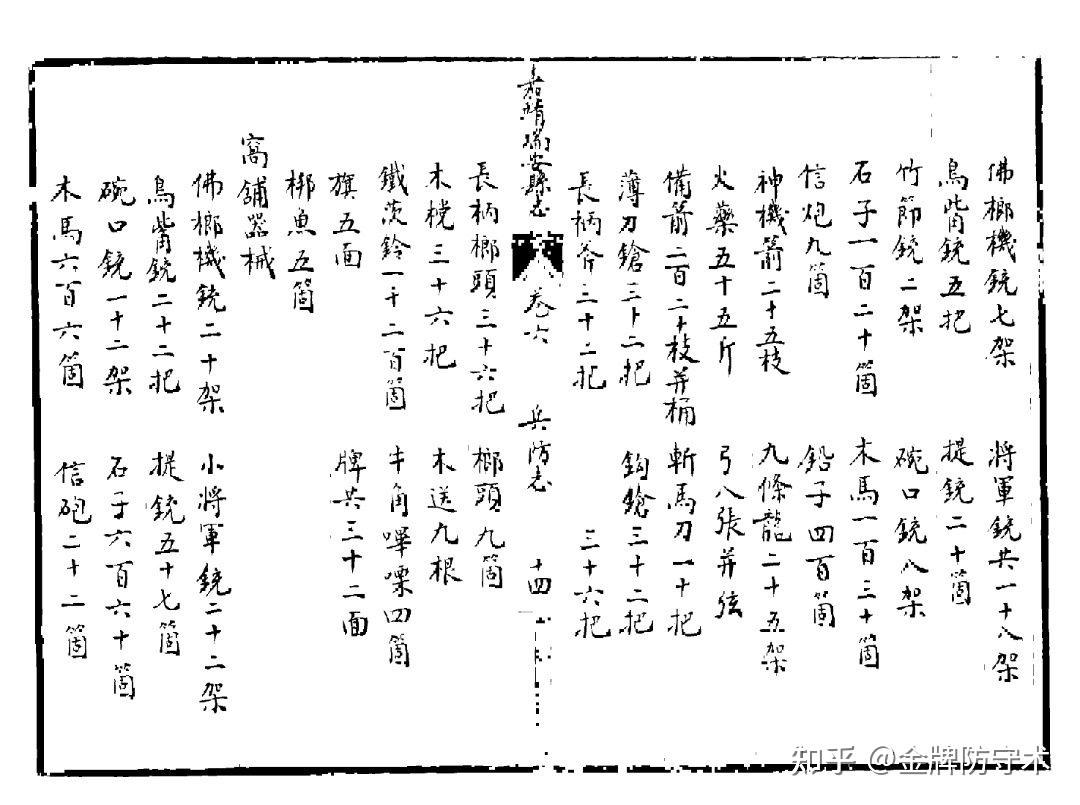 佛榔機銃七架　將軍銃共一十八架
鳥嘴銃五把　提銃二十箇
竹節銃二架　碗口銃八架
石子一百二十箇　木馬一百三十箇
信炮九箇　鉛子四百箇
神機箭二十五枝　九條龍二十五架
火藥五十五斤　弓八張并弦
備箭二百二十枝并桶　斬馬刀一十把
薄刀鎗三十二把　鈎鎗三十二把
長柄斧三十二把　三十六把
嘉靖瑞安縣志　卷六　兵防志　十四
長柄榔頭三十六把　榔頭九箇
木梚三十六把　木送九根
鐵茨鈴一千二百箇　牛角嗶嘌四箇
旗五面　牌共三十二面
梆魚五箇
窩舖器械
佛榔機銃二十架　小將軍銃二十二架
鳥嘴銃二十二把　提銃五十七箇
碗口銃一十二架　石子六百六十箇
木馬六百六箇　信砲二十二箇
知乎 @金牌防守术